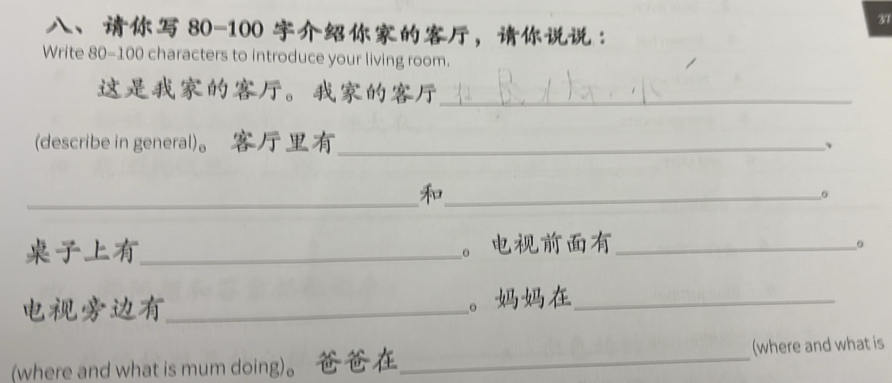 37
八、请你写 80-100 字介绍你家的客厅，请你说说：
Write 80-100 characters to introduce your living room.
这是我家的客厅。我家的客厅
(describe in general)。客厅里有、
和。
桌子上有。电视前面有。
电视旁边有。妈妈在
(where and what is mum doing)。爸爸在(where and what is